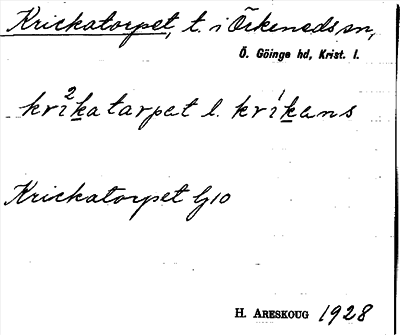 Krickatorpet, t. i Örkeneds sn,
Ö. Göinge hd, Krist. l.
kri²katarpet l. kri¹kans
Krickatorpet Gj10
H. ARESKOUG 1928